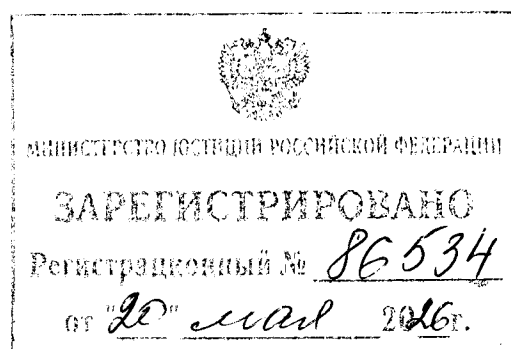 МИНИСТЕРСТВО ЮСТИЦИИ РОССИЙСКОЙ ФЕДЕРАЦИИ
ЗАРЕГИСТРИРОВАНО
Регистрационный № 86534
от "20" мая 2026г.